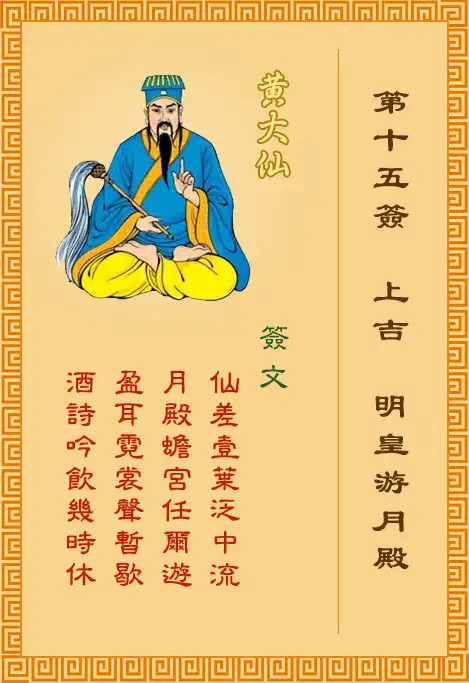 第十五簽 上吉 明皇游月殿
黄大仙
簽文
仙差壹葉泛中流
月殿蟾宮任爾遊
盈耳霓裳聲暫歇
酒詩吟飲幾時休